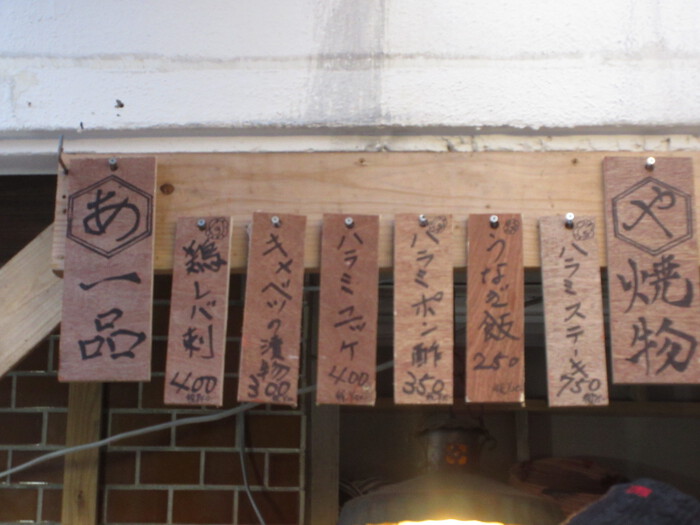 あ
一品
鶏レバ刺
400
キャベツの漬物
300
ハラミユッケ
400
ハラミポン酢
350
うなぎ飯
250
ハラミステーキ
750
や
焼物